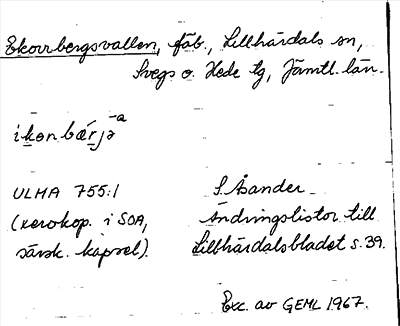 Ekorrbergsvallen, fäb., Lillhärdals sn,
Svegs o. Hede tg, Jämtl. län.
ikɵnbæ̀rjə-a
ULMA 755:1
(xerokop. i SOA,
särsk. kapsel).
S. Åsander
Ändringslistor till
Lillhärdalsbladet s. 39.
Exc. av GEML 1967.